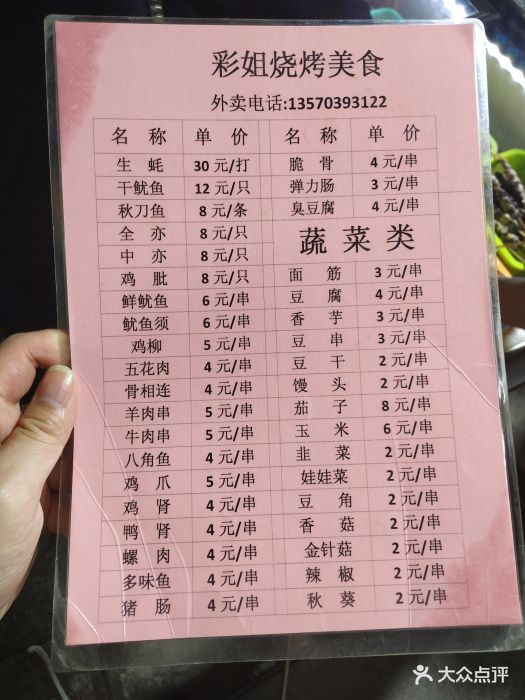 彩姐烧烤美食
外卖电话:13570393122
名 称 单 价 名 称 单 价
生 蚝 30 元/打 脆 骨 4 元/串
干鱿鱼 12 元/只 弹力肠 3 元/串
秋刀鱼 8 元/条 臭豆腐 4 元/串
全 亦 8 元/只 蔬 菜 类
中 亦 8 元/只
鸡 肶 8 元/只 面 筋 3 元/串
鲜鱿鱼 6 元/串 豆 腐 4 元/串
鱿鱼须 6 元/串 香 芋 3 元/串
鸡柳 5 元/串 豆 串 3 元/串
五花肉 4 元/串 豆 干 2 元/串
骨相连 4 元/串 馒 头 2 元/串
羊肉串 5 元/串 茄 子 8 元/串
牛肉串 5 元/串 玉 米 6 元/串
八角鱼 4 元/串 韭 菜 2 元/串
鸡 爪 5 元/串 娃娃菜 2 元/串
鸡 肾 4 元/串 豆 角 2 元/串
鸭 肾 4 元/串 香 菇 2 元/串
螺 肉 4 元/串 金针菇 2 元/串
多味鱼 4 元/串 辣 椒 2 元/串
猪 肠 4 元/串 秋 葵 2 元/串
大众点评